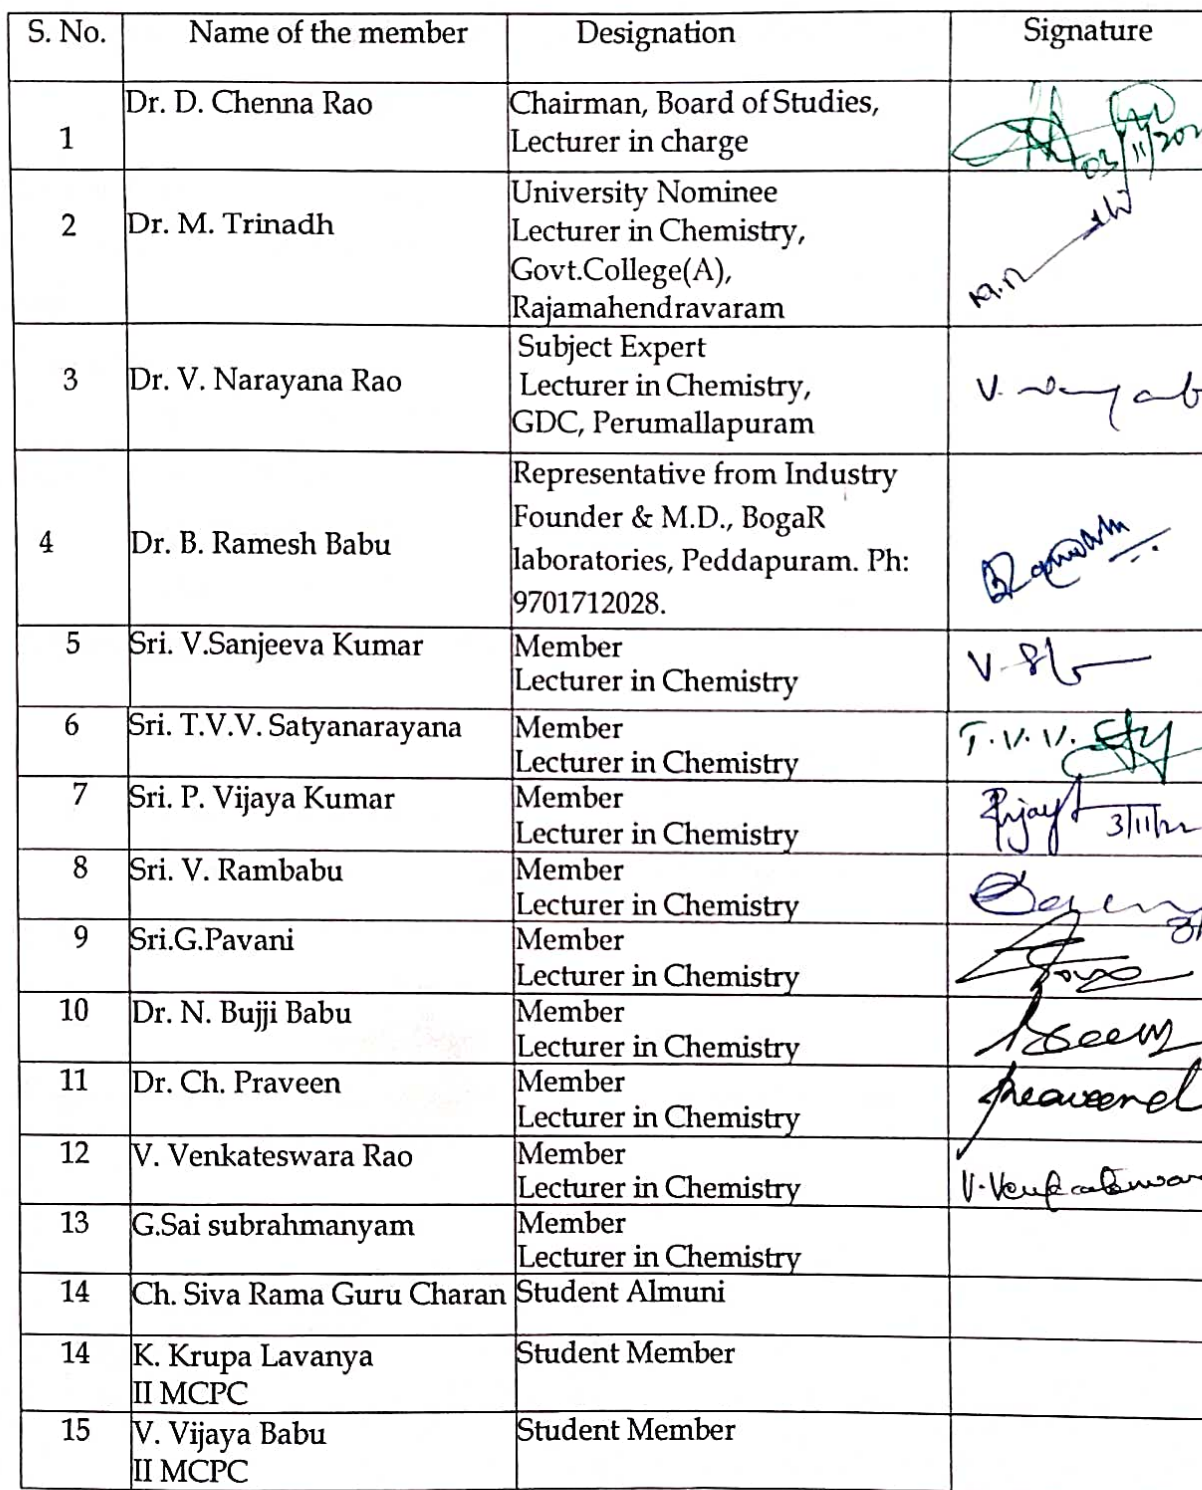 S. No. Name of the member Designation Signature
Dr. D. Chenna Rao Chairman, Board of Studies,
1 Lecturer in charge
03/11/202
University Nominee
2 Dr. M. Trinadh Lecturer in Chemistry,
Govt.College(A),
Rajamahendravaram
Subject Expert
3 Dr. V. Narayana Rao Lecturer in Chemistry,
GDC, Perumallapuram
Representative from Industry
Founder & M.D., BogaR
4 Dr. B. Ramesh Babu laboratories, Peddapuram. Ph:
9701712028.
5 Sri. V.Sanjeeva Kumar Member
Lecturer in Chemistry
6 Sri. T.V.V. Satyanarayana Member T.V.V.
Lecturer in Chemistry
7 Sri. P. Vijaya Kumar Member
Lecturer in Chemistry 3/11/22
8 Sri. V. Rambabu Member
Lecturer in Chemistry
9 Sri.G.Pavani Member
Lecturer in Chemistry
10 Dr. N. Bujji Babu Member
Lecturer in Chemistry
11 Dr. Ch. Praveen Member
Lecturer in Chemistry
12 V. Venkateswara Rao Member
Lecturer in Chemistry
13 G.Sai subrahmanyam Member
Lecturer in Chemistry
14 Ch. Siva Rama Guru Charan Student Almuni
14 K. Krupa Lavanya Student Member
II MCPC
15 V. Vijaya Babu Student Member
II MCPC